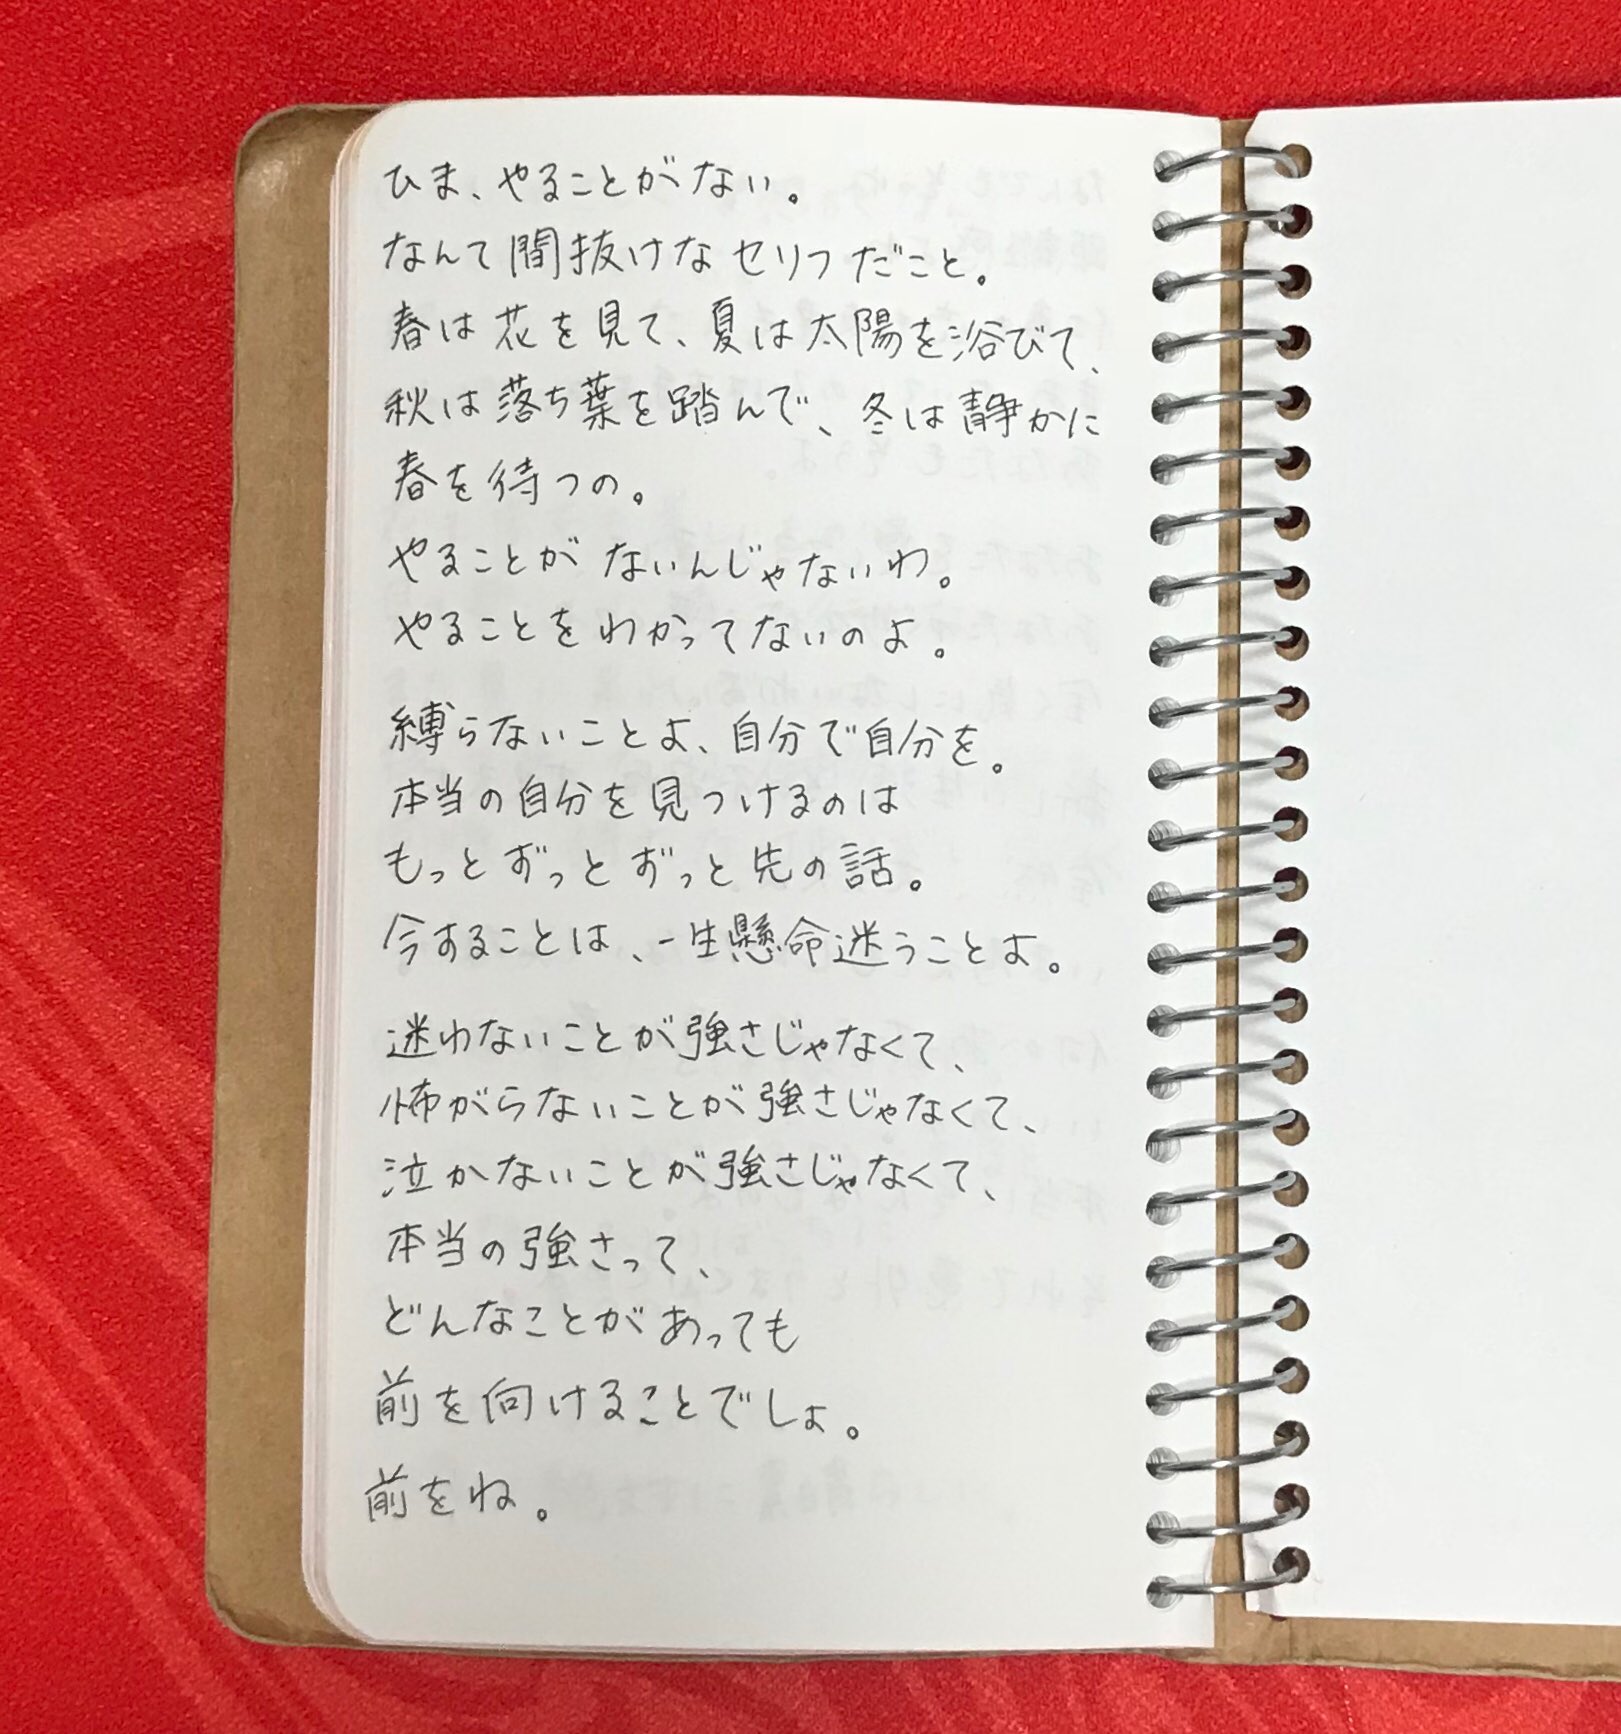 ひま、やることがない。
なんて間抜けなセリフだこと。
春は花を見て、夏は太陽を浴びて、
秋は落ち葉を踏んで、冬は静かに
春を待つの。
やることがないんじゃないわ。
やることをわかってないのよ。
縛らないことよ、自分で自分を。
本当の自分を見つけるのは
もっとずっとずっと先の話。
今することは、一生懸命迷うことよ。
迷わないことが強さじゃなくて、
怖がらないことが強さじゃなくて、
泣かないことが強さじゃなくて、
本当の強さって、
どんなことがあっても
前を向けることでしょ。
前をね。